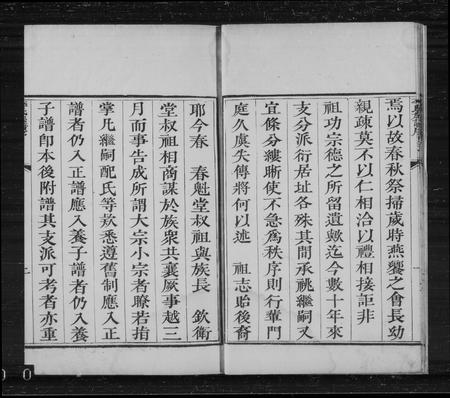 焉以故春秋祭掃歲時燕饗之會長幼
親疎莫不以仁相洽以禮相接詎非
祖功宗德之所留遺歟迄今數十年來
支分派衍居址各殊其間承祧繼嗣又
宜條分縷晰使不急爲秩序則行輩門
庭久虞失傳將何以述　祖志貽後裔
耶今春　春魁堂叔祖與族長　欽衛
堂叔祖相商謀於族衆共襄厥事越三
月而事告成所謂大宗小宗者瞭若指
掌凡繼嗣配氏等欵悉遵舊制應入正
譜者仍入正譜應入養子譜者仍入養
子譜卽本後附譜其支派可考者亦重